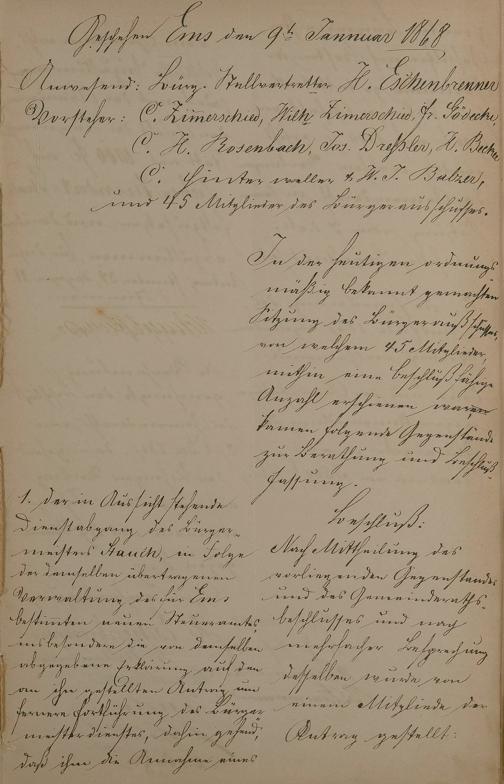 Geschehen Ems den 9ᵗ Jannuar 1868
Anwesend: Bürg. Stellvertretter H. Eschenbrenner
Vorsteher: C. Zimerschied, Wilh Zimerschied, Fr. Gödecke,
C. H. Rosenbach, Jos. Dreßler, H. Becker
C. Hinterweller & W. J. Balzer,
und 45 Mitglieder des Bürgerausschusses.
In der heutigen ordnungs
mäßig bekannt gemachten
Sitzung des Bürgerausschusses,
von welchem 45 Mitglieder
mithin eine beschlußfähige
Anzahl erschienen waren
kamen folgende Gegenstände
zur Berathung und Beschluß
fassung.
1. Der in Aussicht stehende
Dienstabgang des Bürger-
meisters Hauch, in Folge
der demselben übertragenen
Verwaltung des für Ems
bestimten neuen Steueramtes,
insbesondere die von demselben
abgegebene Erklärung auf den
an ihn gestellten Antrag um
fernere Fortführung des Bürger
meisterdienstes, dahin gehend,
daß ihm die Annahme eines
Beschluß:
Nach Mittheilung des
vorliegenden Gegenstandes
und des Gemeinderaths-
beschlusses und nach
mehrfacher Besprechung
desselben wurde von
einem Mitgliede der
Antrag gestellt: